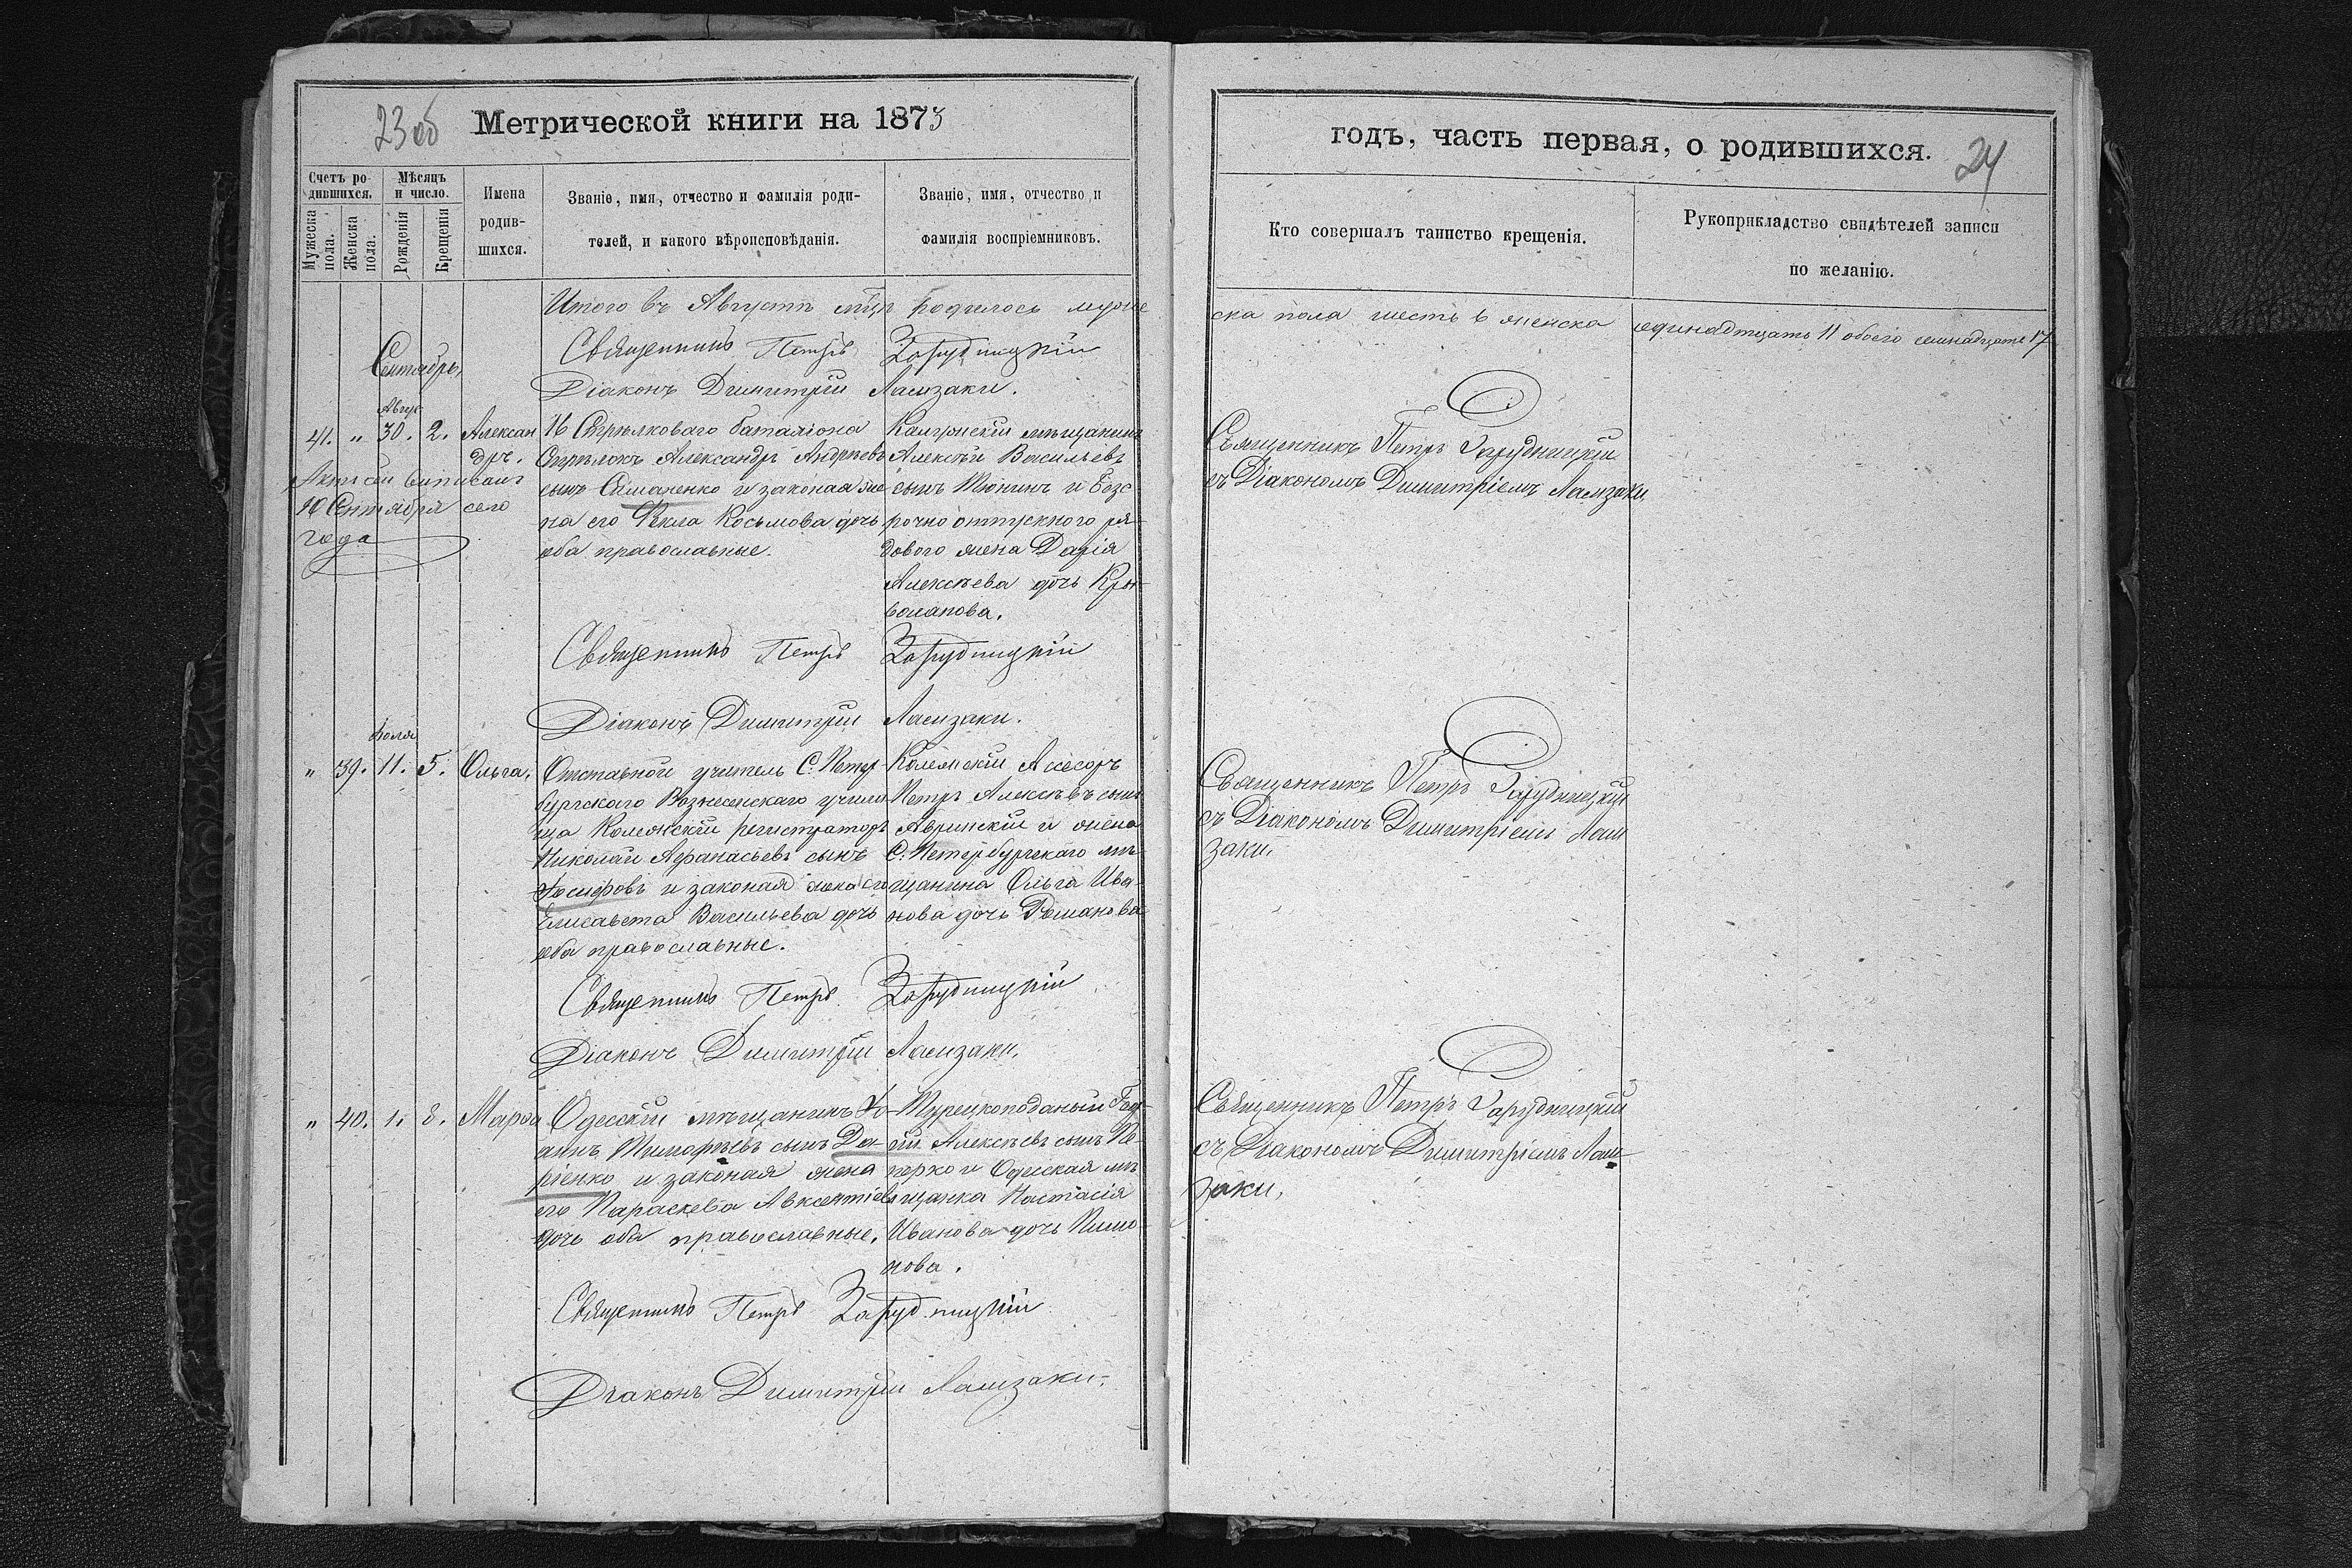 23 об
Метрической книги на 1873
годъ, часть первая, о родившихся.
24
Счетъ ро-
дившихся.
Мужеска пола.
Женска пола.
Мѣсяцъ
и число.
Рожденія
Крещенія
Имена
родив-
шихся.
Званіе, имя, отчество и фамилія роди-
телей, и какого вѣроисповѣданія.
Званіе, имя, отчество и
фамилія воспріемниковъ.
Кто совершалъ таинство крещенія.
Рукоприкладство свидѣтелей записи
по желанію.
Итого въ Августѣ мцѣ родилось муже
ска пола шесть 6 женска одинадтцать 11 обоего семнадцать 17
Сентябрь,
Священникъ Петръ Зарудницкій
Діаконъ Димитрій Ламзаки.
Авгус
41. " 30. 2.
Алексан
дръ.
Актъ сей выписанъ
10 Сентября сего
года
16 Стрѣлковаго баталіона
Стрѣлокъ Александръ Андреевъ
сынъ Симаненко и законая же
на его Фекла Косьмова дочь
оба православные.
мѣщанинъ
Алексѣй Васильевъ
сынъ Тюнинъ и безс
рочно отпускного ря-
дового жена Дарія
Алексѣева дочь
Священникъ Петръ Зарудницкій
съ Діакономъ Димитріемъ Ламзаки
Священникъ Петръ Зарудницкій
Діаконъ Димитрій Ламзаки.
Іюля
" 39. 11. 5. Ольга.
Отставной учитель С. Петер-
бургскаго Вознесенскаго учили
ща Колежскій регистраторъ
Николай Афанасьевъ сынъ
Іосифовъ и законая жена его
Елисавета Васильева дочь
оба православные.
Колежскій Асесоръ
Петръ Алексѣевъ сынъ
и жена
С. Петербургскаго мѣ-
щанина Ольга Ива-
нова дочь Романова
Священникъ Петръ Зарудницкій
съ Діакономъ Димитріемъ Лам
заки.
Священникъ Петръ Зарудницкій
Діаконъ Димитрій Ламзаки.
" 40. 1. 8. Марѳа
Одесскій мѣщанинъ Іо-
аннъ Тимофѣевъ сынъ Да-
ріенко и законая жена
его Параскева Авксентіева
дочь оба православные.
Турецкоподаный
Алексѣевъ сынъ
и Одесская мѣ
щанка Настасія
Иванова дочь Пимо-
нова.
Священникъ Петръ Зарудницкій
съ Діакономъ Димитріемъ Лам-
заки.
Священникъ Петръ Зарудницкій
Діаконъ Димитрій Ламзаки.